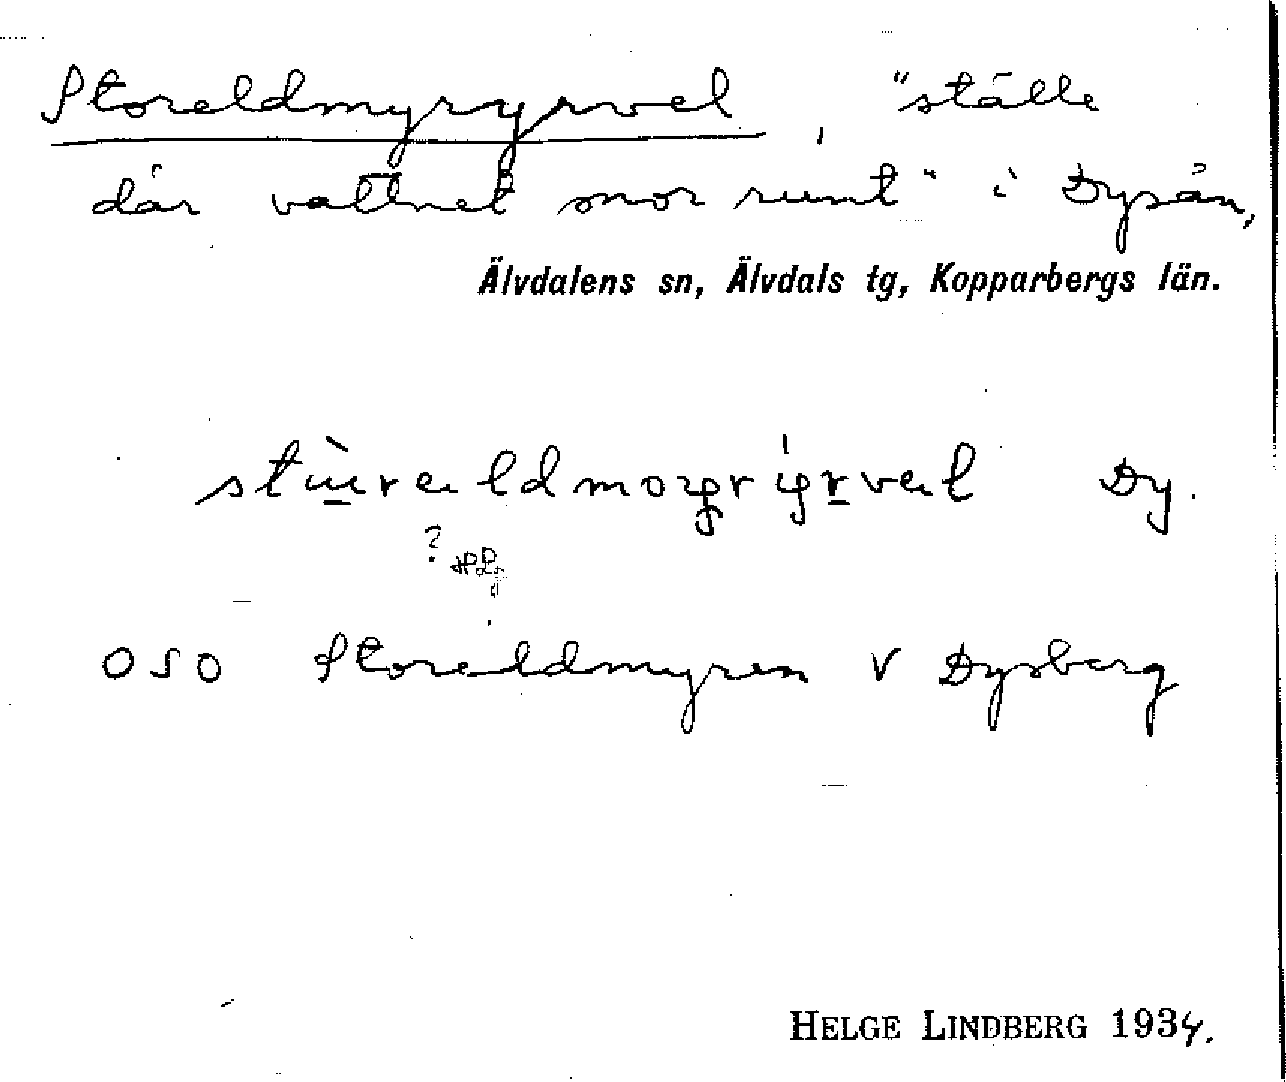 Storeldmyryrvel, "ställe
där vattnet snor runt" i Dysån,
Älvdalens sn, Älvdals tg, Kopparbergs län.
Dy.
?
OSO Storeldmyren V Dysberg
HELGE LINDBERG 1934.